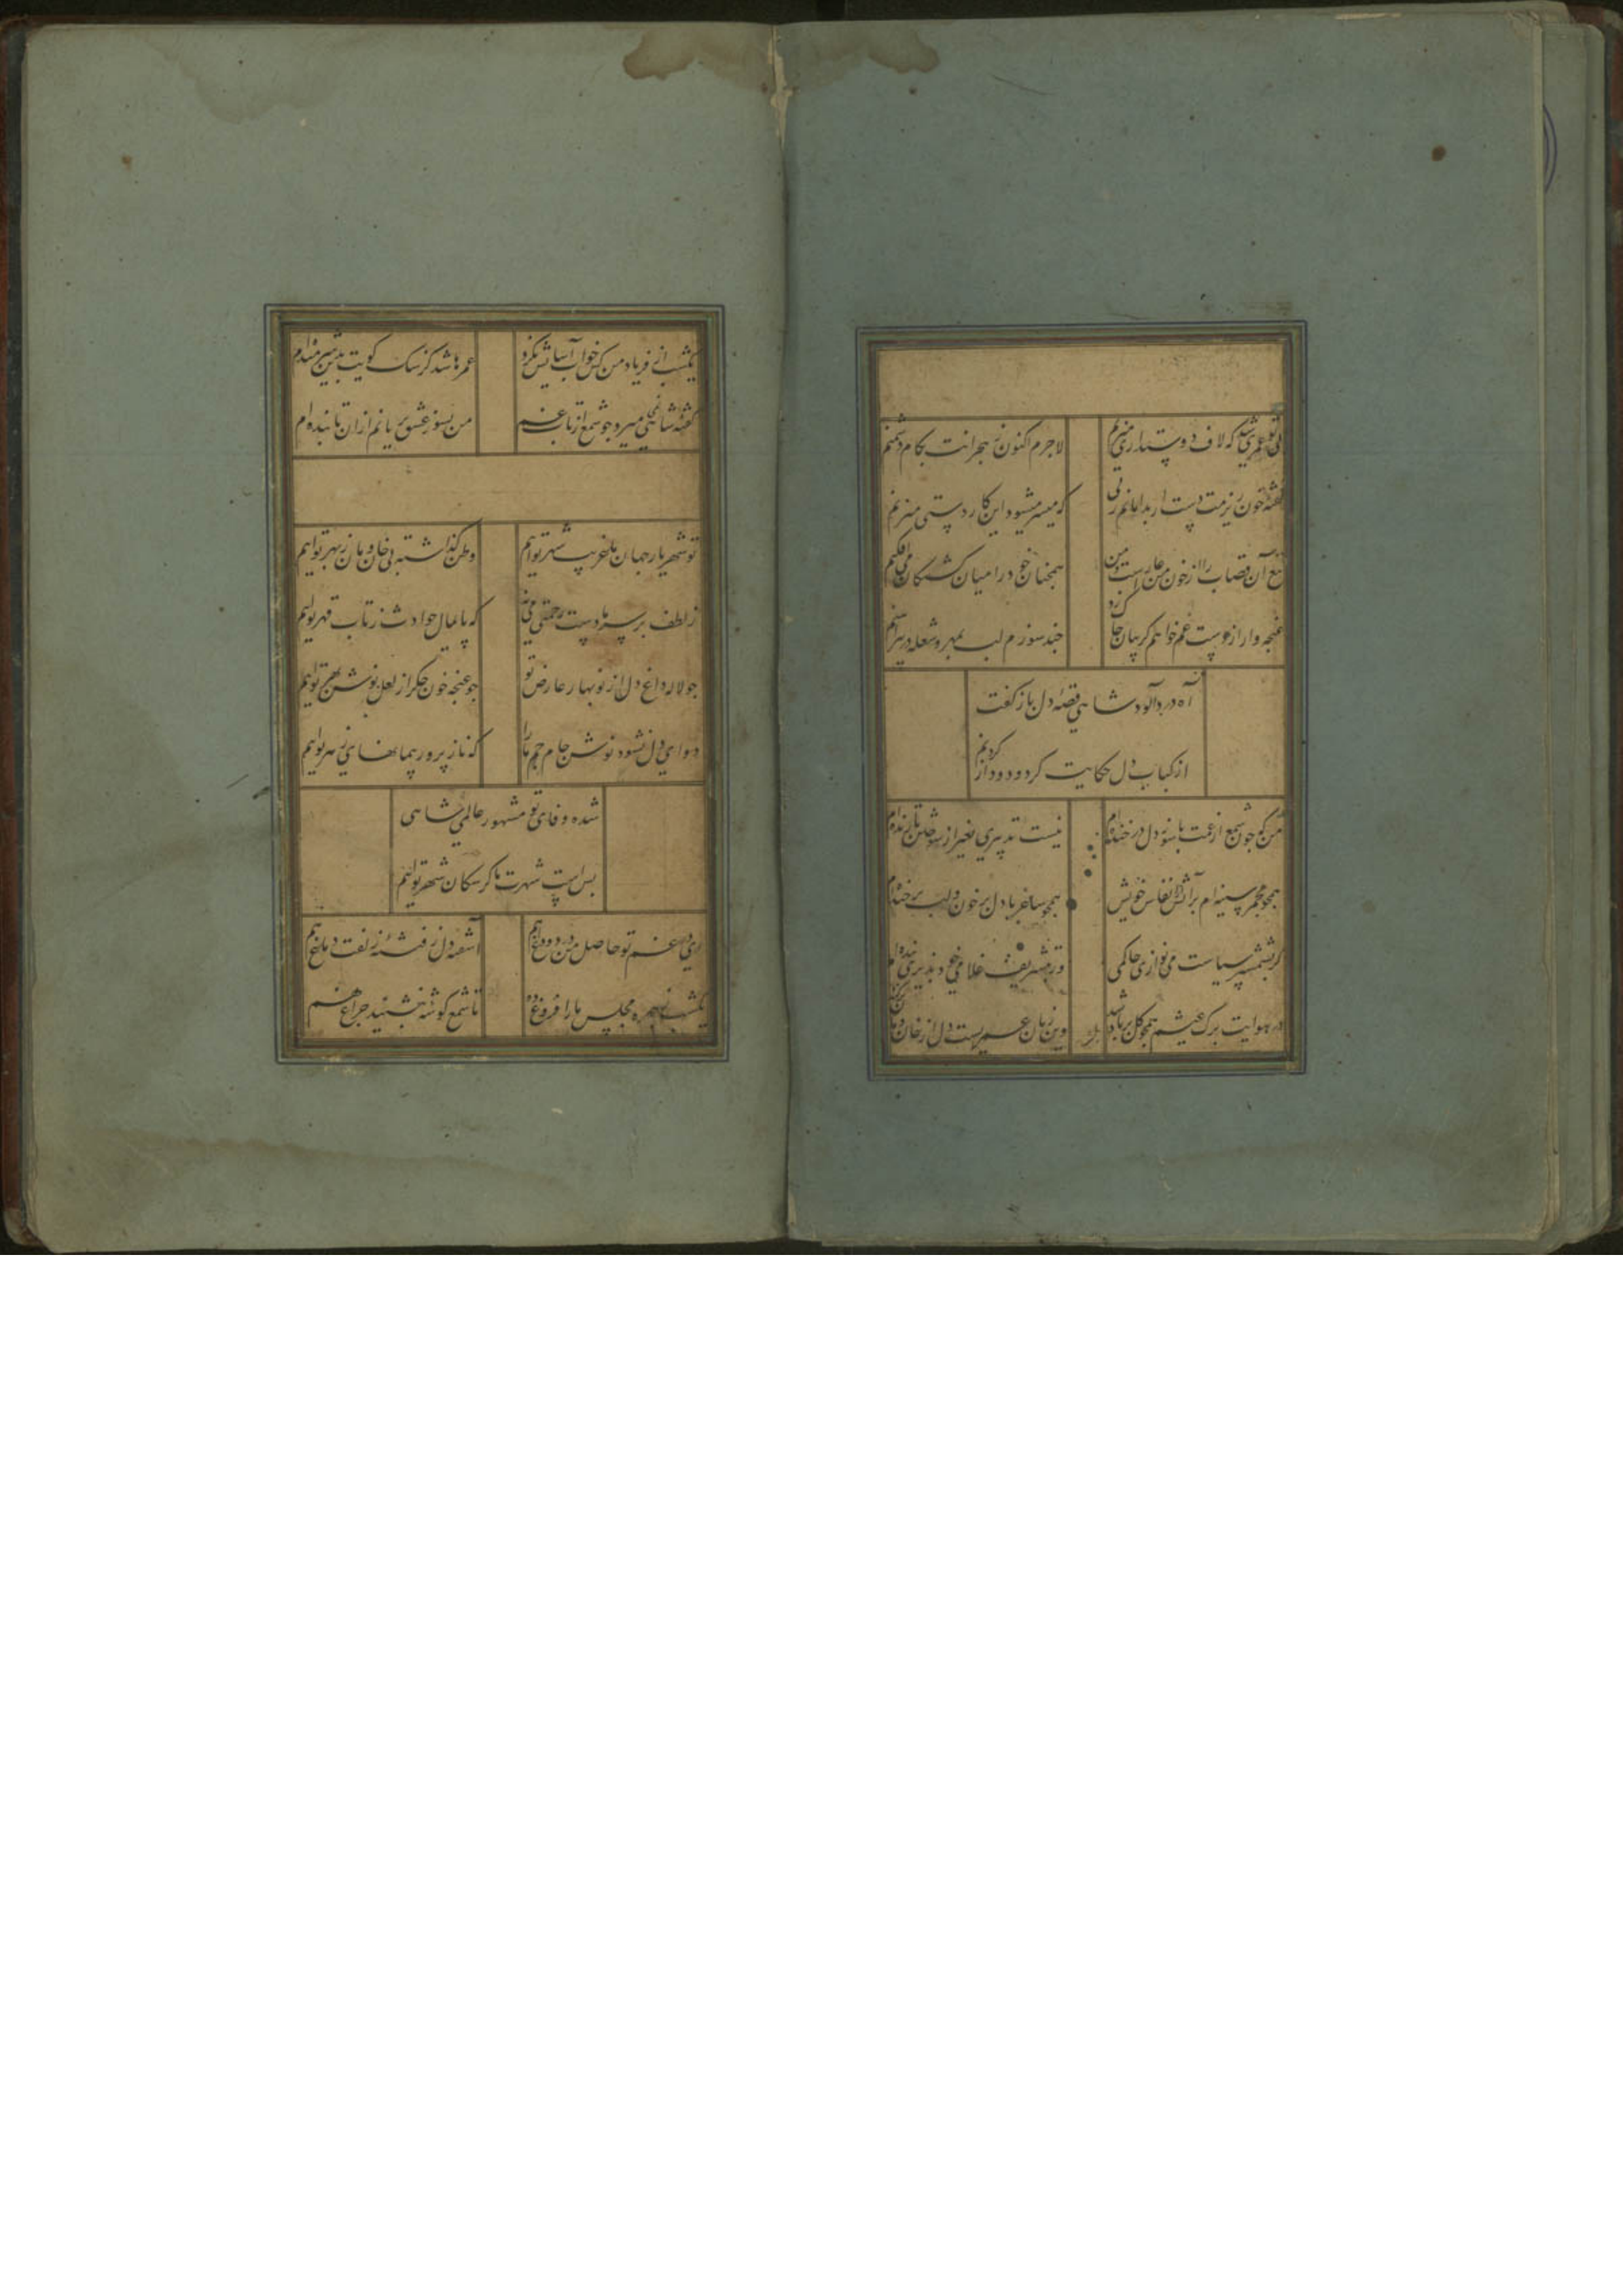 عمری شد که لاف دوستداری میزنم
لاجرم اکنون ز هجرانت بکام دشمنم
خون ریزمت دست ار بدامانم زنی
که میسر میشود این کار دستی میزنم
تیغ آن قصاب را از خون من عارست و من
همچنان خود را میان کشتگان می افکنم
غنجه وار از دست غم خواهم کریبان جاک زد
جند سوزم لب بمهر و شعله در پیراهنم
آه دردآلود شاهی قصه دل باز کفت
از کباب دل حکایت کرد و دود از
من که جون شمع از غمت با سوز دل در خنده ام
نیست تدبیری بغیر از سوختن تا زنده ام
همجو مجمر سینه ام بر آتش از انفاس خویش
همجو ساغر با دل پر خون و لب پر خنده ام
کر بشمشیر سیاست می نوازی حاکمی
ور بتشریف غلامی خود پذیری بنده ام
در هوایت برک عیشم همجو کل بر باد شد
وین زمان عمریست دل از خان و مان
یکشب از فریاد من کس خواب آسایش نکرد
عمرها شد کز سک کویت بدین شرمنده ام
کفته شاهی میرود جو شمع از تاب غم
من بسوز عشق بریانم ازان تابنده ام
تو شهریار جهان ما غریب شهر توایم
وطن کذاشته بی خان و مان ز بهر توایم
ز لطف بر سر ما دست رحمتی می نه
که پایمال حوادث ز تاب قهر توایم
جو لاله داغ دل از نوبهار عارض تو
جو غنجه خون جکر از لعل نوش بهر توایم
دوای دل نشود نوش جام جم ما را
که ناز پرور پیمانهای زهر توایم
شده وفای تو مشهور عالمی شاهی
بس است شهرت ما کز سکان شهر توایم
ای در غم تو حاصل من درد و داغ هم
آشفته دل ز فتنه زلفت دماغ هم
یکشب ز جهره مجلس ما را فروغ ده
تا شمع کوشه بنشیند جراغ هم